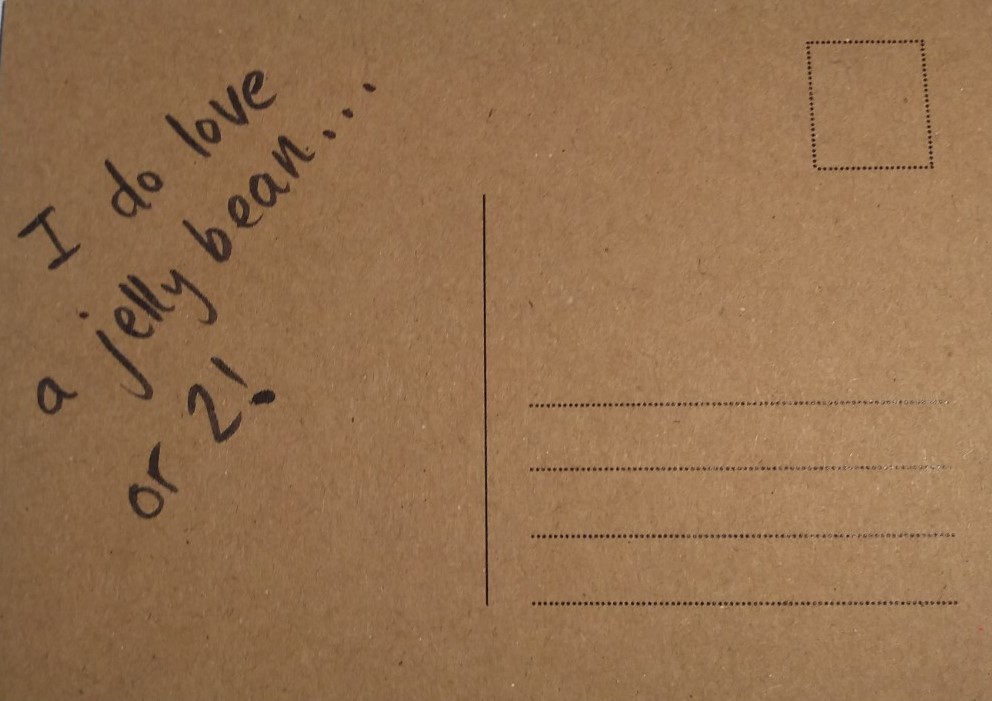 I do love
a jelly bean...
or 2!